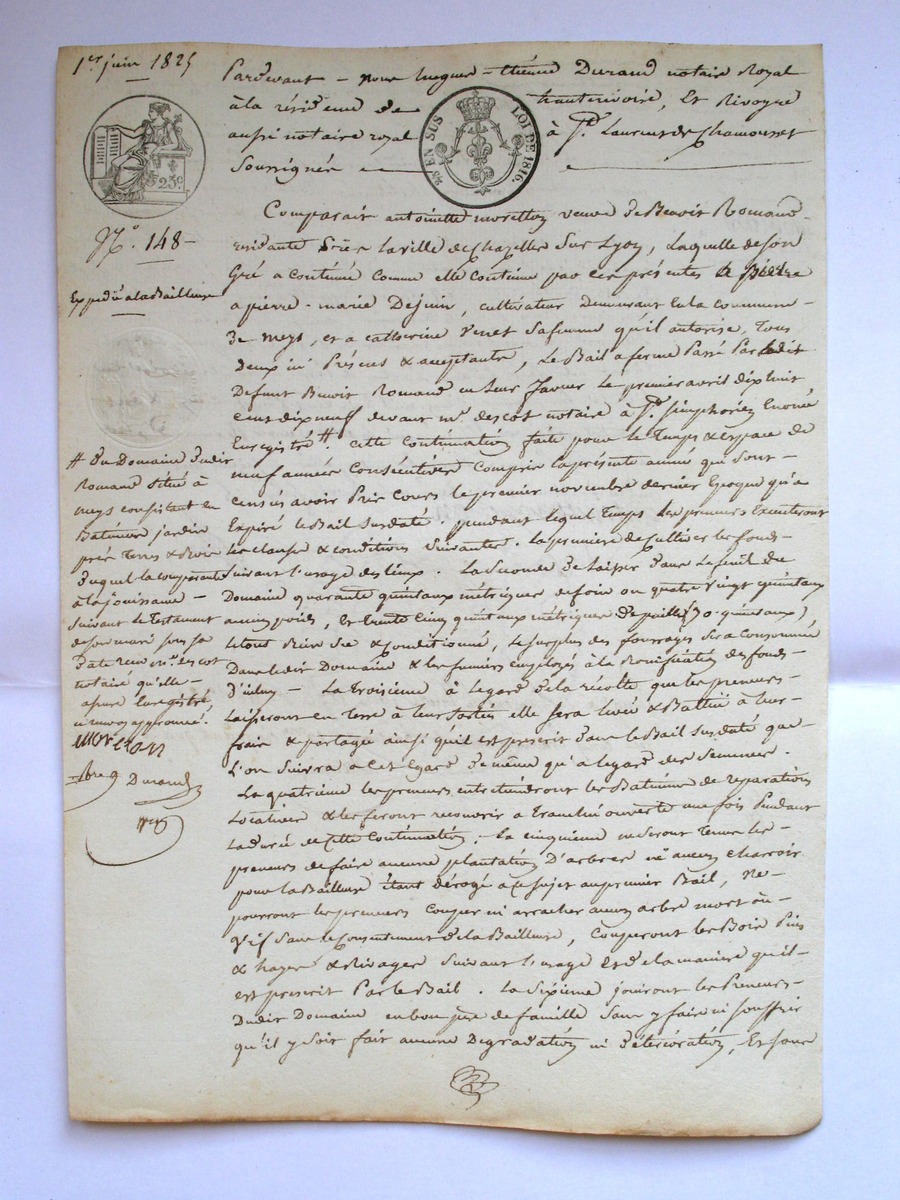 1er juin 1825
Pardevant - nous hugues - étienne Durand notaire Royal
à la résidence de hauterivoire, Et Rivoyre
aussi notaire royal à St. Laurent de Chamousset
Soussignés
25c
EN SUS LOI DE 1816.
N° 148 -
Expédié à la Bailleuse
Comparait antoinette morellon veuve de Benoit Romand
résidante la ville de Chazelles Sur Lyon, Laquelle de Son
Gré a continué comme elle continue par ces présentes
a pierre - marie Dejuin, cultivateur demeurant En la commune
De meys, et a catherine Venet Sa femme qu'il autorise, Tous
Deux ici Présens & acceptants, Le Bail a ferme Passé Par ledit
Defunt Benoit Romand en Leur faveur Le premier avril dix huit
Cent dix neuf devant me. descot notaire à St. simphorien
Enregistré #. Cette Continuation faite pour le Temps & Espace de
neuf années Consécutives Comprise la présente année qui Sont
Censés avoir Pris Cours le premier novembre dernier Epoque qu'a
Expiré le Bail susdaté. pendant lequel Temps Les preneurs Executeront
Les clauses & conditions Suivantes. La première de Cultiver les fonds
Suivant l'usage des lieux. La Seconde De laisser Dans Le fenil du
Domaine quarante quintaux métriques de foin ou quatre vingt quintaux
ancien poids, & trente Cinq quintaux métriques de paille (70 quintaux)
le tout Bien Sec & Conditionné, le Surplus des fourrages Sera Consommé
Dans ledit Domaine & les fumiers employés à la Bonification des fonds
D'icelui - La Troisième à l'egard de la récolte que les preneurs
Laisseront en Terre à leur Sortie elle Sera levée & Battue à leur
frais & partagée ainsi qu'il est prescrit Dans le Bail Susdaté que
L'on Suivra a Cet Egard De même qu'à l'egard des Semences.
La quatrième les preneurs entretiendront les Batimens de reparations
Locatives & les feront recouvrir à Tranchée ouverte une fois Pendant
La durée de Cette Continuation. La cinquième ne Seront Tenus les
preneurs de faire aucune plantation D'arbres ni aucun Charroi
pour la Bailleuse étant dérogé à ce Sujet au premier Bail, Ne
pourront les preneurs Couper ni arracher aucun arbre mort ou
Vif Sans le Consentement de la Bailleuse, Couperont les Bois Pins
& hayes & Rivages Suivant l'usage Et de la manière qu'il
est prescrit Par le Bail. La Sixième jouiront les Preneurs
Dudit Domaine en bon père de famille Sans y faire ni Souffrir
qu'il y Soit fait aucune Dégradation ni Détérioration, Et Sans
# du Domaine dudit
Romand Situé à
meys consistant en
Batimens jardin
prés Terres & Bois
Duquel la comparante
à la jouissance -
Suivant le Testament
de Son mari Sous Sa
Date reçu me. descot
notaire qu'elle
assure Enregistré,
ci renvoi approuvé.
morelon
Durand